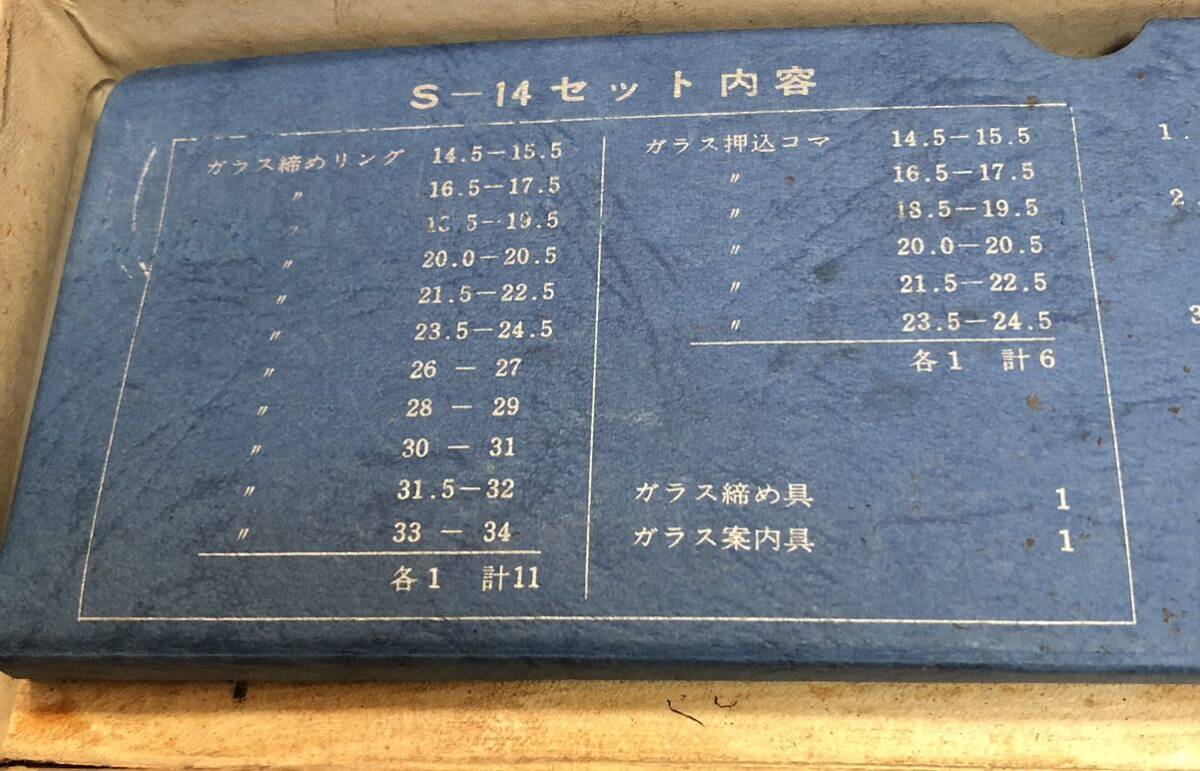 S－14セット内容
ガラス締めリング 14.5－15.5
〃 16.5－17.5
〃 18.5－19.5
〃 20.0－20.5
〃 21.5－22.5
〃 23.5－24.5
〃 26 － 27
〃 28 － 29
〃 30 － 31
〃 31.5－32
〃 33 － 34
各1 計11
ガラス押込コマ 14.5－15.5
〃 16.5－17.5
〃 18.5－19.5
〃 20.0－20.5
〃 21.5－22.5
〃 23.5－24.5
各1 計6
ガラス締め具 1
ガラス案内具 1
1.
2.
3